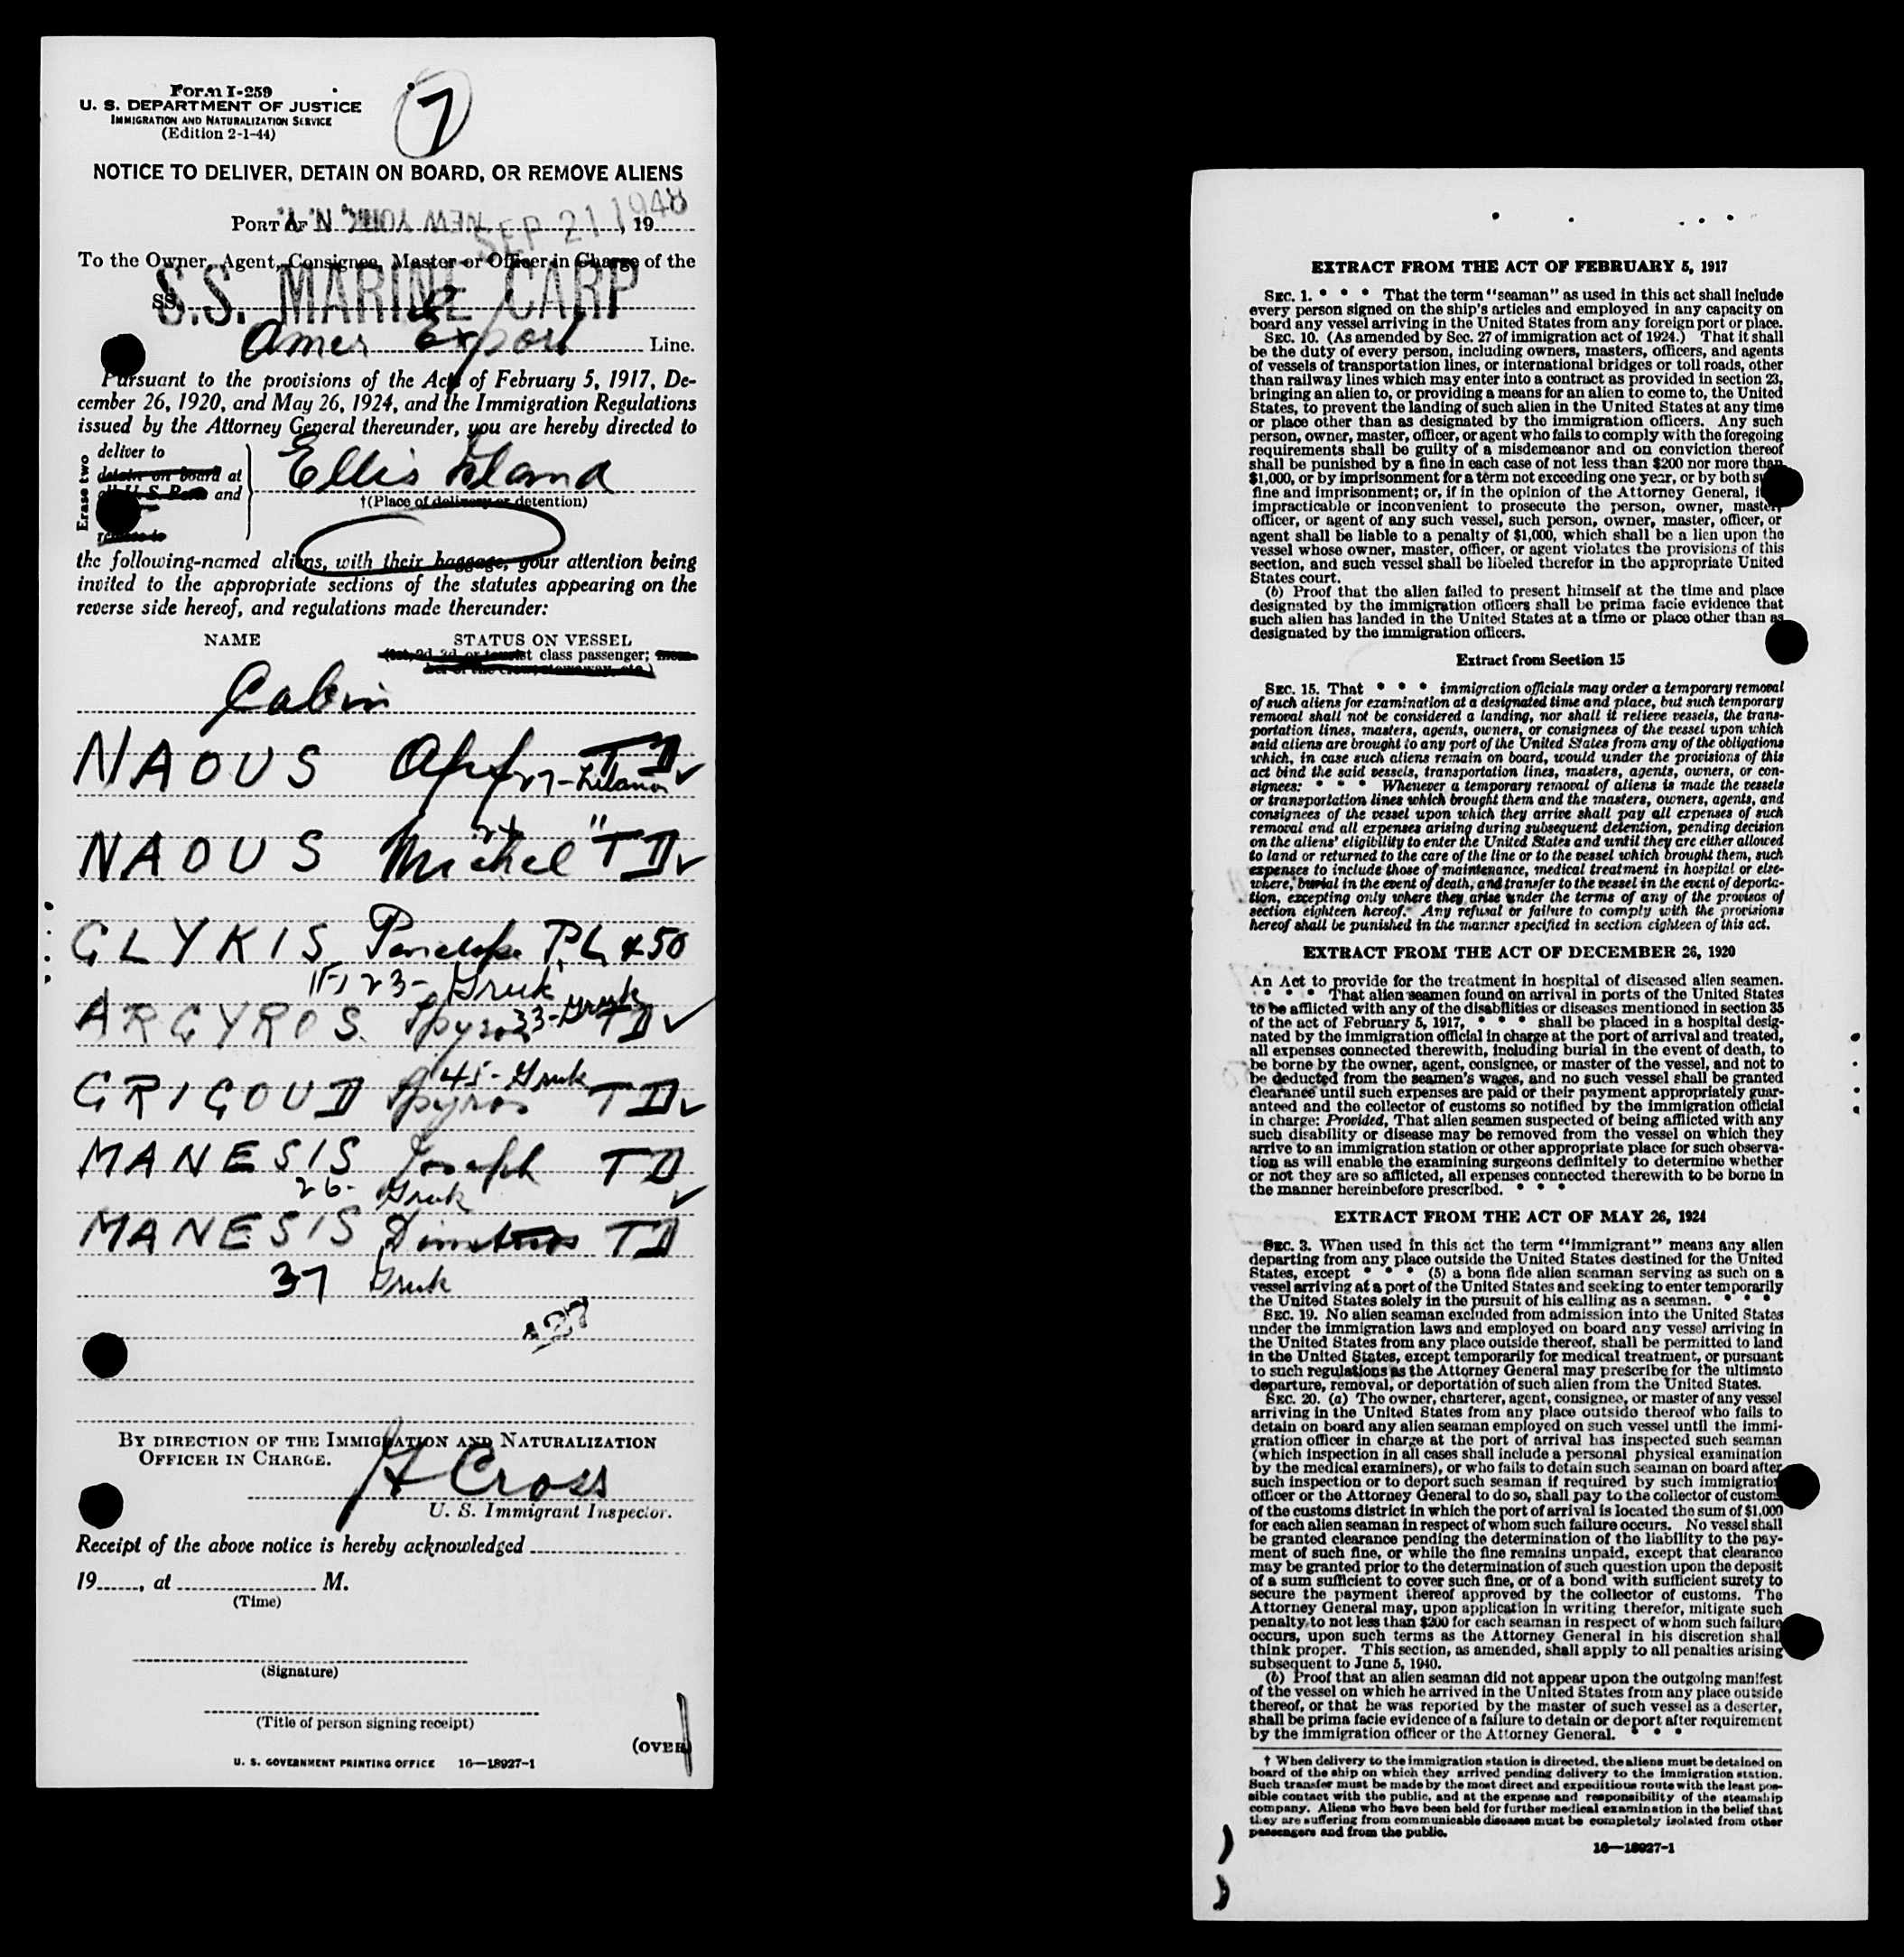 Form I-259
U. S. DEPARTMENT OF JUSTICE
IMMIGRATION AND NATURALIZATION SERVICE
(Edition 2-1-44)
7
NOTICE TO DELIVER, DETAIN ON BOARD, OR REMOVE ALIENS
PORT OF NEW YORK, N. Y. SEP 21 1948, 19
To the Owner, Agent, Consignee, Master or Officer in Charge of the
SS. S.S. MARINE CARP
Amer Export Line.
Pursuant to the provisions of the Acts of February 5, 1917, De-
cember 26, 1920, and May 26, 1924, and the Immigration Regulations
issued by the Attorney General thereunder, you are hereby directed to
Erase two
deliver to
detain on board at
U. S. and
Ellis Island
†(Place of delivery or detention)
the following-named aliens, with their baggage, your attention being
invited to the appropriate sections of the statutes appearing on the
reverse side hereof, and regulations made thereunder:
NAME STATUS ON VESSEL
(1st, 2d, 3d, or tourist class passenger;
Cabin
NAOUS TD
27-
NAOUS Michel " TD
GLYKIS Penelope P.L 450
23- Greek
ARGYROS Spyros TD
33-Greek
45- Greek
GRIGOUD Spyros TD
MANESIS Joseph TD
26- Greek
MANESIS Dimitrios TD
37 Greek
BY DIRECTION OF THE IMMIGRATION AND NATURALIZATION
OFFICER IN CHARGE.
H Cross
U. S. Immigrant Inspector.
Receipt of the above notice is hereby acknowledged
19......, at M.
(Time)
(Signature)
(Title of person signing receipt)
(OVER)
U. S. GOVERNMENT PRINTING OFFICE 16—18927-1
EXTRACT FROM THE ACT OF FEBRUARY 5, 1917
SEC. 1. * * * That the term "seaman" as used in this act shall include
every person signed on the ship's articles and employed in any capacity on
board any vessel arriving in the United States from any foreign port or place.
SEC. 10. (As amended by Sec. 27 of immigration act of 1924.) That it shall
be the duty of every person, including owners, masters, officers, and agents
of vessels of transportation lines, or international bridges or toll roads, other
than railway lines which may enter into a contract as provided in section 23,
bringing an alien to, or providing a means for an alien to come to, the United
States, to prevent the landing of such alien in the United States at any time
or place other than as designated by the immigration officers. Any such
person, owner, master, officer, or agent who fails to comply with the foregoing
requirements shall be guilty of a misdemeanor and on conviction thereof
shall be punished by a fine in each case of not less than $200 nor more than
$1,000, or by imprisonment for a term not exceeding one year, or by both such
fine and imprisonment; or, if in the opinion of the Attorney General, it is
impracticable or inconvenient to prosecute the person, owner, master,
officer, or agent of any such vessel, such person, owner, master, officer, or
agent shall be liable to a penalty of $1,000, which shall be a lien upon the
vessel whose owner, master, officer, or agent violates the provisions of this
section, and such vessel shall be libeled therefor in the appropriate United
States court.
(b) Proof that the alien failed to present himself at the time and place
designated by the immigration officers shall be prima facie evidence that
such alien has landed in the United States at a time or place other than as
designated by the immigration officers.
Extract from Section 15
SEC. 15. That * * * immigration officials may order a temporary removal
of such aliens for examination at a designated time and place, but such temporary
removal shall not be considered a landing, nor shall it relieve vessels, the trans-
portation lines, masters, agents, owners, or consignees of the vessel upon which
said aliens are brought to any port of the United States from any of the obligations
which, in case such aliens remain on board, would under the provisions of this
act bind the said vessels, transportation lines, masters, agents, owners, or con-
signees: * * * Whenever a temporary removal of aliens is made the vessels
or transportation lines which brought them and the masters, owners, agents, and
consignees of the vessel upon which they arrive shall pay all expenses of such
removal and all expenses arising during subsequent detention, pending decision
on the aliens' eligibility to enter the United States and until they are either allowed
to land or returned to the care of the line or to the vessel which brought them, such
expenses to include those of maintenance, medical treatment in hospital or else-
where, burial in the event of death, and transfer to the vessel in the event of deporta-
tion, excepting only where they arise under the terms of any of the provisos of
section eighteen hereof. Any refusal or failure to comply with the provisions
hereof shall be punished in the manner specified in section eighteen of this act.
EXTRACT FROM THE ACT OF DECEMBER 26, 1920
An Act to provide for the treatment in hospital of diseased alien seamen.
* * * * That alien seamen found on arrival in ports of the United States
to be afflicted with any of the disabilities or diseases mentioned in section 35
of the act of February 5, 1917, * * * shall be placed in a hospital desig-
nated by the immigration official in charge at the port of arrival and treated,
all expenses connected therewith, including burial in the event of death, to
be borne by the owner, agent, consignee, or master of the vessel, and not to
be deducted from the seamen's wages, and no such vessel shall be granted
clearance until such expenses are paid or their payment appropriately guar-
anteed and the collector of customs so notified by the immigration official
in charge: Provided, That alien seamen suspected of being afflicted with any
such disability or disease may be removed from the vessel on which they
arrive to an immigration station or other appropriate place for such observa-
tion as will enable the examining surgeons definitely to determine whether
or not they are so afflicted, all expenses connected therewith to be borne in
the manner hereinbefore prescribed. * * *
EXTRACT FROM THE ACT OF MAY 26, 1924
SEC. 3. When used in this act the term "immigrant" means any alien
departing from any place outside the United States destined for the United
States, except * * * (5) a bona fide alien seaman serving as such on a
vessel arriving at a port of the United States and seeking to enter temporarily
the United States solely in the pursuit of his calling as a seaman. * * *
SEC. 19. No alien seaman excluded from admission into the United States
under the immigration laws and employed on board any vessel arriving in
the United States from any place outside thereof, shall be permitted to land
in the United States, except temporarily for medical treatment, or pursuant
to such regulations as the Attorney General may prescribe for the ultimate
departure, removal, or deportation of such alien from the United States.
SEC. 20. (a) The owner, charterer, agent, consignee, or master of any vessel
arriving in the United States from any place outside thereof who fails to
detain on board any alien seaman employed on such vessel until the immi-
gration officer in charge at the port of arrival has inspected such seaman
(which inspection in all cases shall include a personal physical examination
by the medical examiners), or who fails to detain such seaman on board after
such inspection or to deport such seaman if required by such immigration
officer or the Attorney General to do so, shall pay to the collector of customs
of the customs district in which the port of arrival is located the sum of $1,000
for each alien seaman in respect of whom such failure occurs. No vessel shall
be granted clearance pending the determination of the liability to the pay-
ment of such fine, or while the fine remains unpaid, except that clearance
may be granted prior to the determination of such question upon the deposit
of a sum sufficient to cover such fine, or of a bond with sufficient surety to
secure the payment thereof approved by the collector of customs. The
Attorney General may, upon application in writing therefor, mitigate such
penalty to not less than $200 for each seaman in respect of whom such failure
occurs, upon such terms as the Attorney General in his discretion shall
think proper. This section, as amended, shall apply to all penalties arising
subsequent to June 5, 1940.
(b) Proof that an alien seaman did not appear upon the outgoing manifest
of the vessel on which he arrived in the United States from any place outside
thereof, or that he was reported by the master of such vessel as a deserter,
shall be prima facie evidence of a failure to detain or deport after requirement
by the immigration officer or the Attorney General. * * *
† When delivery to the immigration station is directed, the aliens must be detained on
board of the ship on which they arrived pending delivery to the immigration station.
Such transfer must be made by the most direct and expeditious route with the least pos-
sible contact with the public, and at the expense and responsibility of the steamship
company. Aliens who have been held for further medical examination in the belief that
they are suffering from communicable diseases must be completely isolated from other
passengers and from the public.
16—18927-1